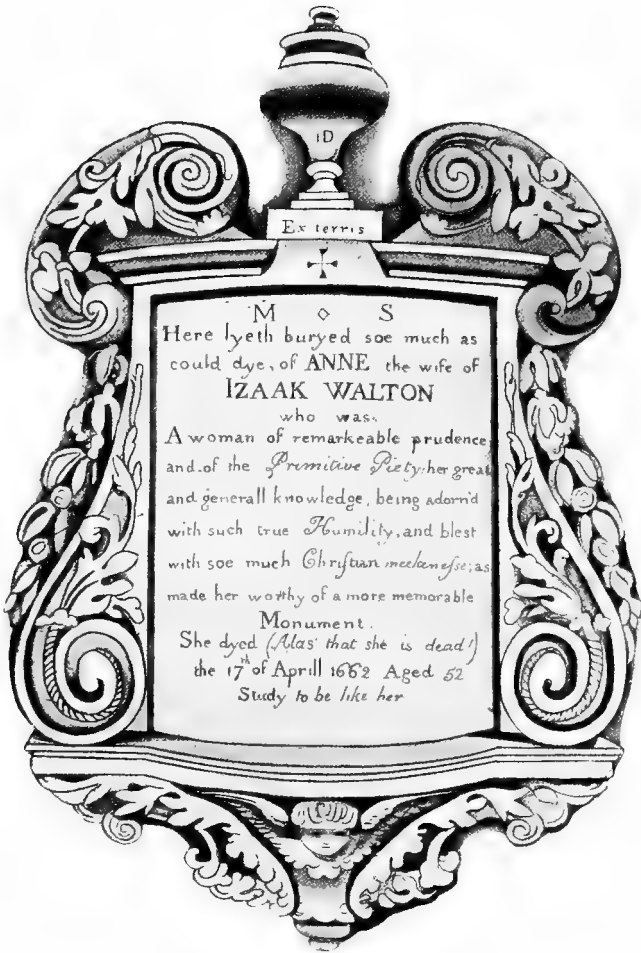 ID
Ex terris
M ◇ S
Here lyeth buryed soe much as
could dye, of ANNE the wife of
IZAAK WALTON
who was,
A woman of remarkeable prudence
and of the Primitive Piety: her great
and generall knowledge, being adorn'd
with such true Humility, and blest
with soe much Christian meekenesse; as
made her worthy of a more memorable
Monument.
She dyed (Alas that she is dead!)
the 17th of Aprill 1662 Aged 52
Study to be like her